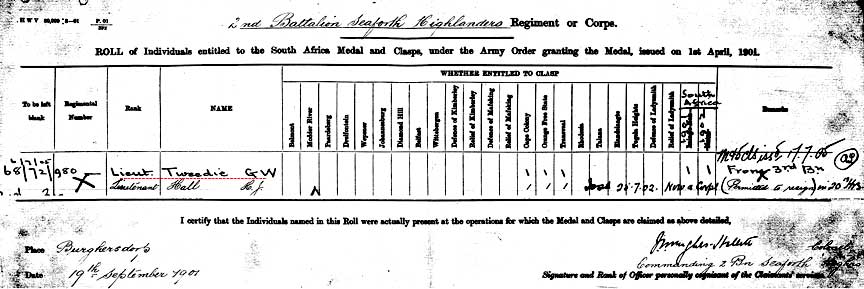 2nd Battalion Seaforth Highlanders Regiment or Corps.
ROLL of Individuals entitled to the South Africa Medal and Clasps, under the Army Order granting the Medal, issued on 1st April, 1901.
WHETHER ENTITLED TO CLASP
To be left blank
Regimental Number
Rank
NAME
Belmont
Modder River
Paardeberg
Driefontein
Wepener
Johannesburg
Diamond Hill
Belfast
Wittebergen
Defence of Kimberley
Relief of Kimberley
Defence of Mafeking
Relief of Mafeking
Cape Colony
Orange Free State
Transvaal
Rhodesia
Talana
Elandslaagte
Tugela Heights
Defence of Ladysmith
Relief of Ladysmith
South Africa
1901
1902
Remarks
68/72/980 Lieut. Tweedie G W From 3rd Bn
Lieutenant Hall H. J. 20.7.02. Now a Corpl (Permitted to resign)
I certify that the Individuals named in this Roll were actually present at the operations for which the Medal and Clasps are claimed as above detailed,
Place Burghersdorp
Date 19th September 1901
Commanding 2 Bn Seaforth
Signature and Rank of Officer personally cognisant of the Claimants' services.